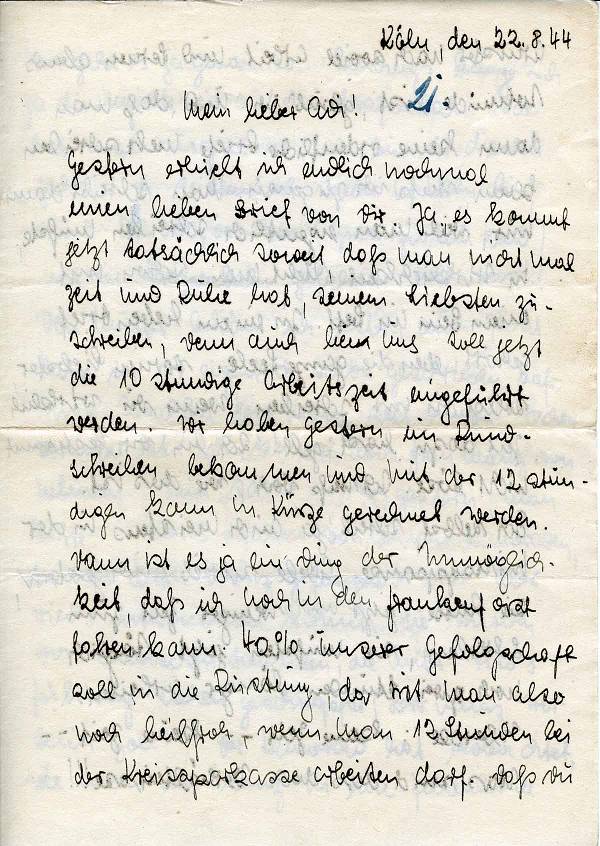 Köln, den 22.8.44
Mein lieber Adi! 21.
Gestern erhielt ich endlich nochmal
einen lieben Brief von dir. Ja, es kommt
jetzt tatsächlich soweit daß man nicht mal
Zeit und Ruhe hat, seinem Liebsten zu-
schreiben, denn auch hier uns soll jetzt
die 10 stündige Arbeitszeit eingeführt
werden. Wir haben gestern ein Rund-
schreiben bekommen und mit der 12 stün-
digen kann in Kürze gerechnet werden.
Dann ist es ja ein Ding der Unmöglich-
keit, daß ich noch in den
fahren kann. 40% unserer Gefolgschaft
soll in die Rüstung, da ist man also
noch heilfroh, wenn man 12 Stunden bei
der Kreissparkasse arbeiten darf. Daß du